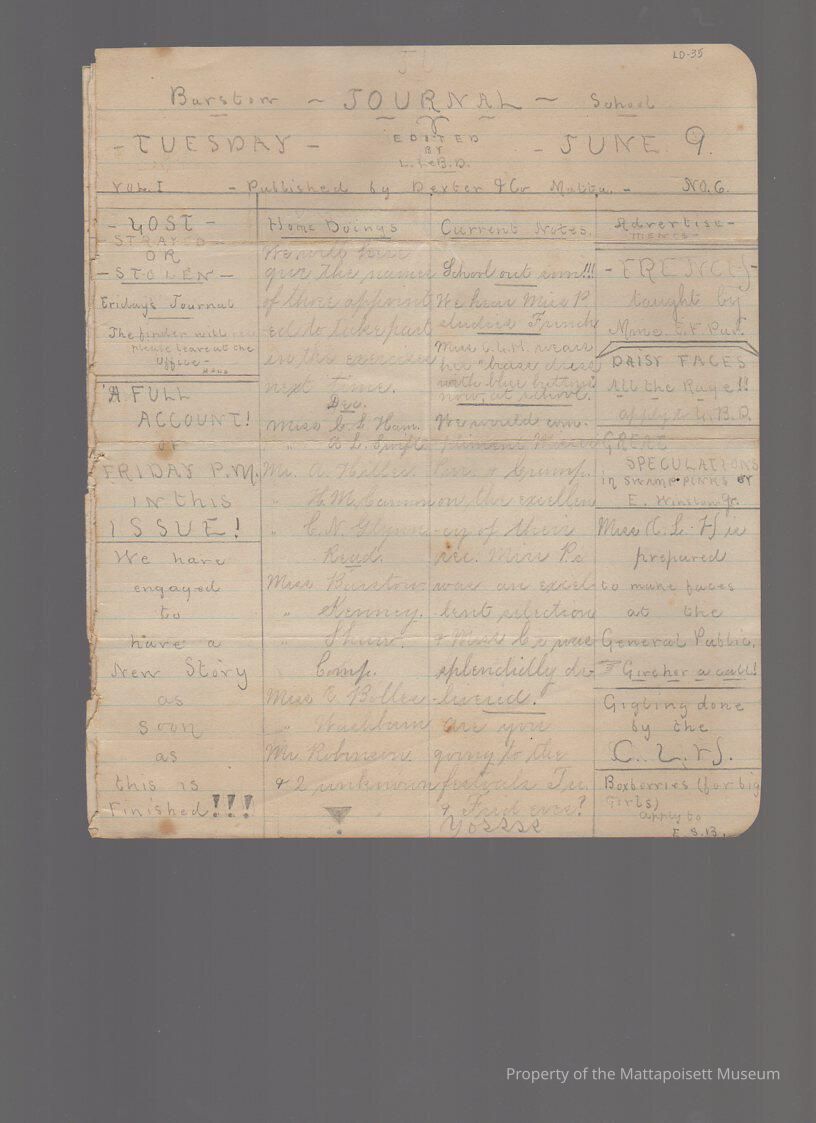 LD-35
Barstow ~ JOURNAL ~ School
- TUESDAY -
EDITED
BY
L. Le B. D.
- JUNE 9.
VOL. I - Published by Dexter & Co Matta. - NO. 6.
- LOST -
STRAYED
OR
- STOLEN -
Friday's Journal
The finder will
please leave at the
Office -
A FULL
ACCOUNT!
OF
FRIDAY P.M.
IN this
ISSUE!
We have
engaged
to
have a
New Story
as
soon
as
this is
Finished!!!
Home Doings
We will here
give the names
of those appoint
ed to take part
in the exercises
next time.
Dec.
Miss C. L. Ham.
" A. L. Swift
Mr. A. Holles
" H. M. Cannon
" C. N. Glynn
Read.
Miss Barstow
" Kenney.
" Shaw.
" Comp.
Miss C. Bolles
" Washburn
Mr. Robinson.
& 2 unknown
Current Notes.
School out soon!!!
We hear Miss P.
studies French
Miss C. L. H. wears
her dress
with blue buttons
now, at school.
We would com-
pliment Misses
Pur. & Crump.
on the excellen
-cy of their
rec. Miss P's
was an excel-
lent selection
& Miss C's was
splendidly de-
livered.
Are you
going to the
festivals Tu.
& Frid eve?
Yossse
Advertise-
ments-
- FRENCH -
taught by
Mme. E. F. Pur.
DAISY FACES
All the Rage!!
apply to G. B. D.
GREAT
SPECULATIONS
in SWAMP PINKS BY
E. Winston Jr.
Miss C. L. H is
prepared
to make faces
at the
General Public.
Give her a call!
Gigling done
by the
C. L. H's.
Boxberries (for big
girls)
apply to
E. S. B.
Property of the Mattapoisett Museum